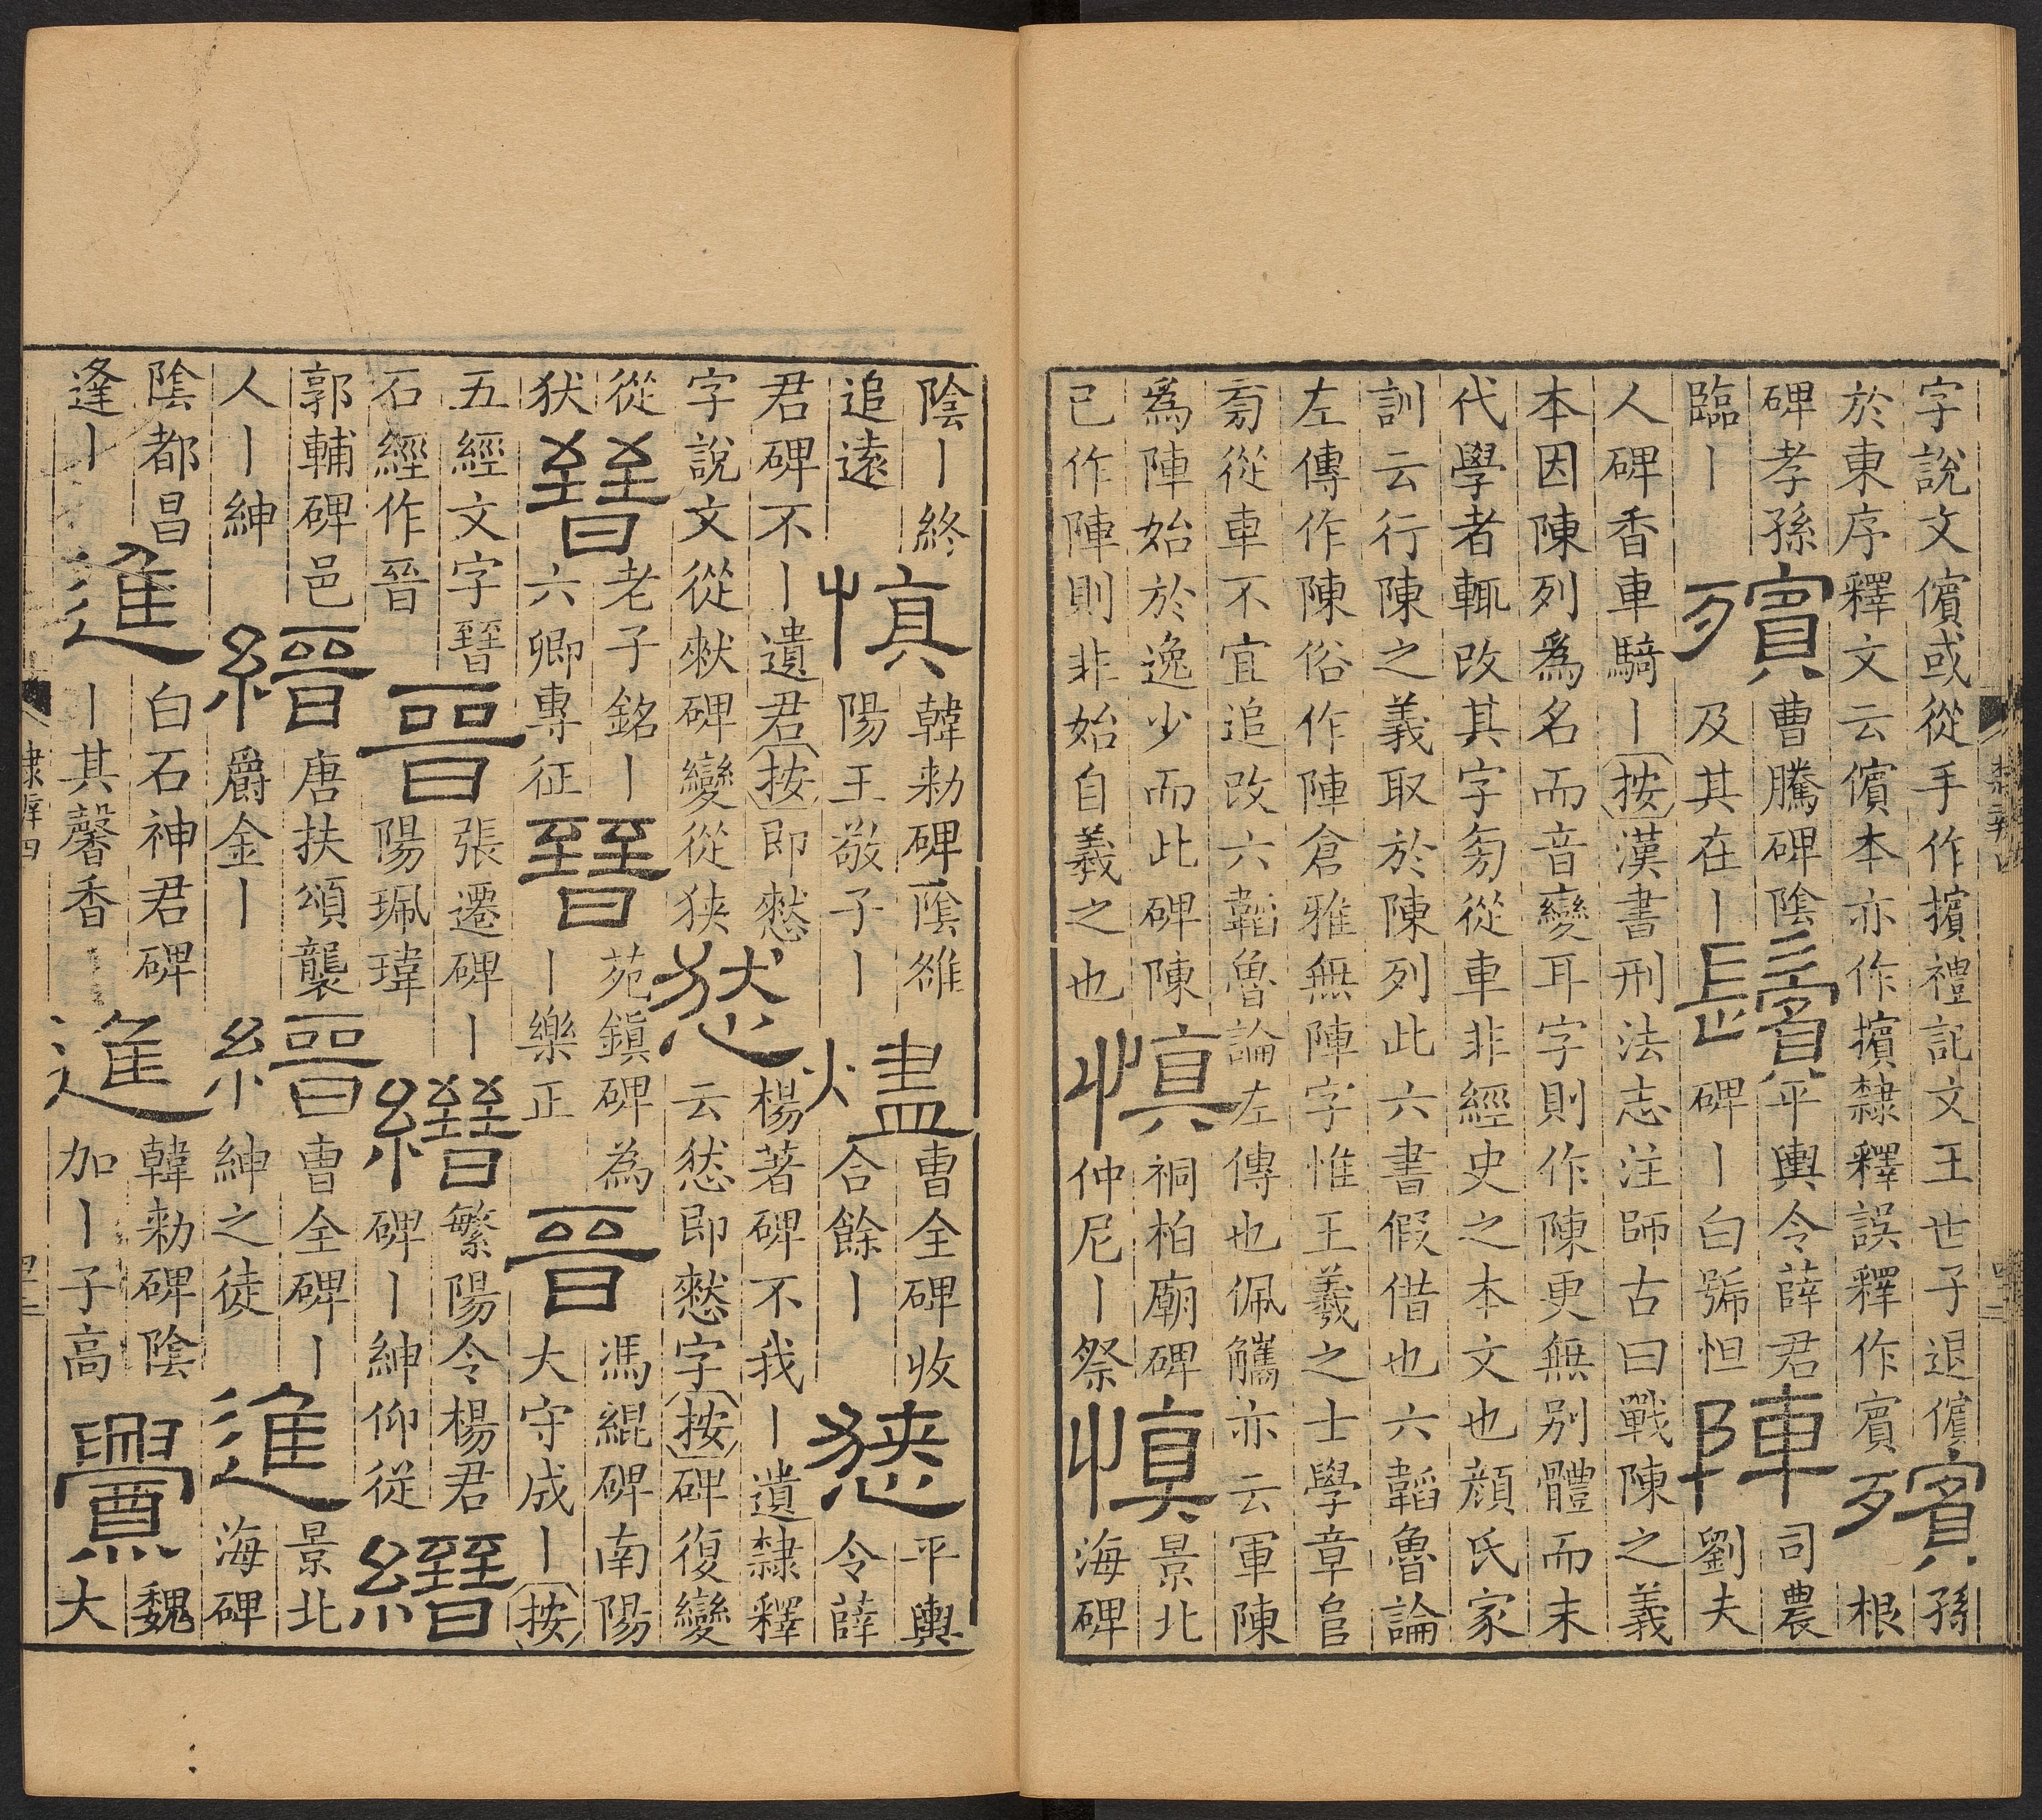 字說文儐或從手作擯禮記文王世子退儐
於東序釋文云儐本亦作擯隸釋誤釋作賓
殯
孫
根
碑孝孫
臨丨
殯
曹騰碑陰
及其在丨
鬢
平輿令薛君
碑丨白號怛
陣
司農
劉夫
人碑香車騎丨按漢書刑法志注師古曰戰陳之義
本因陳列爲名而音變耳字則作陳更無别體而末
代學者輒改其字旁從車非經史之本文也顔氏家
訓云行陳之義取於陳列此六書假借也六韜魯論
左傳作陳俗作陣倉雅無陣字惟王羲之士學章𨸏
旁從車不宜追改六韜魯論左傳也佩觿亦云軍陳
爲陣始於逸少而此碑陳
已作陣則非始自義之也
慎
祠柏廟碑
仲尼丨祭
慎
景北
海碑
陰丨終
追遠
慎
韓勑碑陰雒
陽王敬子丨
燼
曹全碑收
合餘丨
憖
平輿
令薛
君碑不丨遺君按即憖
字說文從猌碑變從狭
憖
楊著碑不我丨遺隸釋
云愁即憖字按碑復變
從
狀
晉
老子銘丨
六卿專征
晉
苑鎮碑爲
丨樂正
晉
馮緄碑南陽
大守成丨按
五經文字㬜
石經作晉
晉
張遷碑丨
陽珮瑋
縉
繁陽令楊君
碑丨紳仰從
縉
郭輔碑邑
人丨紳
縉
唐扶頌襲
爵金丨
縉
曹全碑丨
紳之徒
進
景北
海碑
陰都昌
逢丨
進
白石神君碑
丨其馨香
進
韓勑碑陰
加丨子高
釁
魏
大